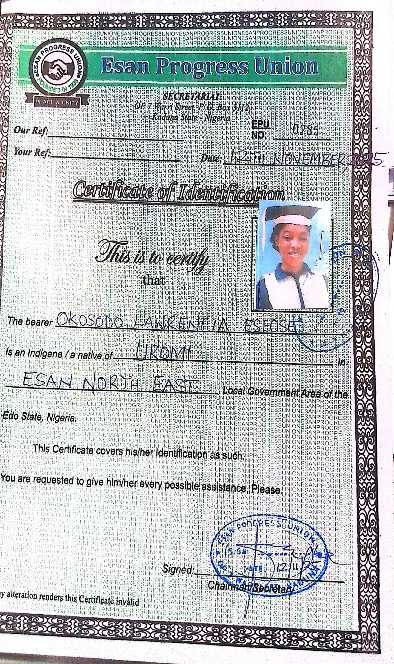 Esan Progress Union
ESAN PROGRESS UNION
SECRETARIAT
Kaduna State - Nigeria
Our Ref:
EPU
NO:
Your Ref:
Date: 12TH NOVEMBER,
Certificate of Identification
This is to certify
that
The bearer OKOSODO LAWRENTIA ESEOSE
Is an Indigene / a native of UROMI in
ESAN NORTH EAST Local Government Area of the
Edo State, Nigeria.
This Certificate covers his/her identification as such.
You are requested to give him/her every possible assistance, Please.
ESAN PROGRESS UNION
Signed:
Chairman/Secretary
alteration renders this Certificate invalid